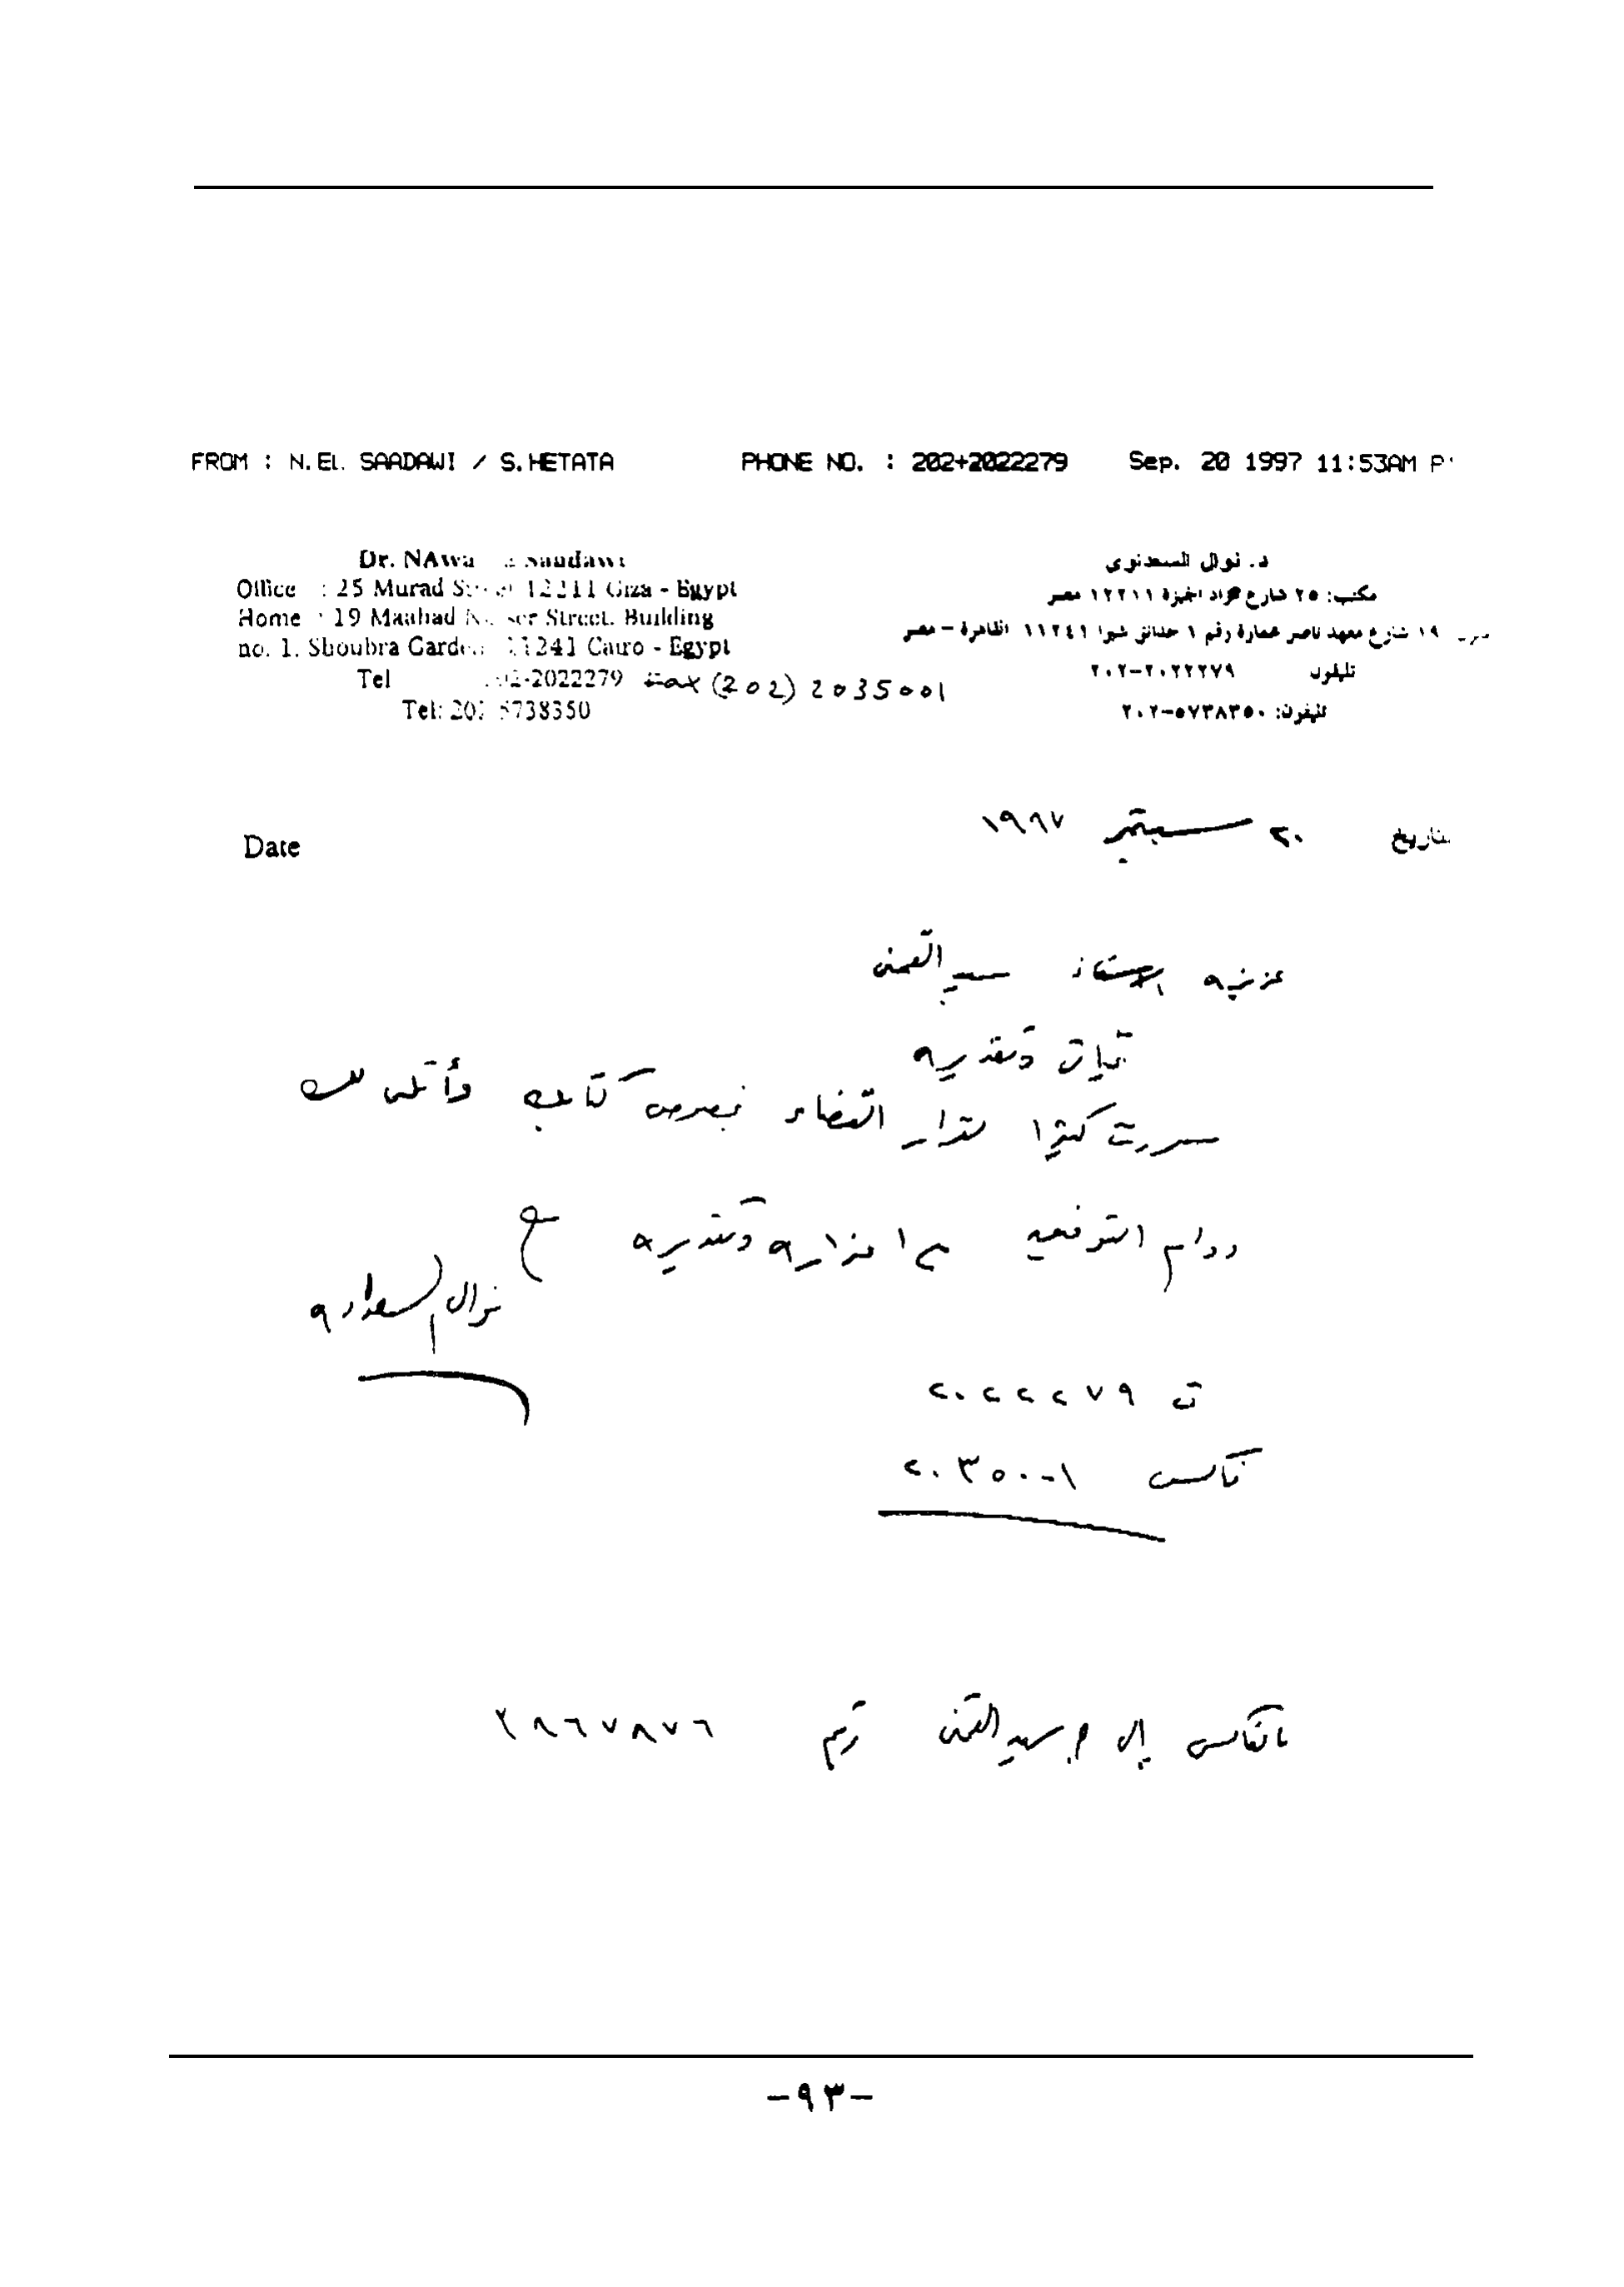 FROM : N.EL SAADAWI / S.HETATA PHONE NO. : 202+2022279 Sep. 20 1997 11:53AM P
Dr. NAwa Saadawi
Office : 25 Murad Street 12211 Giza - Egypt
Home : 19 Maahad Nasser Street. Building
no. 1. Shoubra Garden 11241 Cairo - Egypt
Tel 202-2022279 Fax (202) 2035001
Tel: 202 5738350
د. نوال السعداوي
مكتب: ٢٥ شارع مراد الجيزة ١٢٢١١ مصر
١٩ شارع معهد ناصر عمارة رقم ١ حدائق شبرا ١١٢٤١ القاهرة - مصر
تليفون ٢٠٢-٢٠٢٢٢٧٩
تليفون: ٢٠٢-٥٧٣٨٣٥٠
Date
تاريخ ٢٠ سبتمبر ١٩٩٧
عزيزي الاستاذ سيد القمنى
تحياتى وتقديرى
سررت كثيرا لقرار القضاء بخصوص كتابك وأتمنى لك
دوام التوفيق مع اعزازى وتقديرى
نوال السعداوى
ت ٢٠٢٢٢٧٩
فاكس ٢٠٣٥٠٠١
بالفاكس إلى د. سيد القمنى رقم ٣٨٦٧٨٧٦
-٩٣-